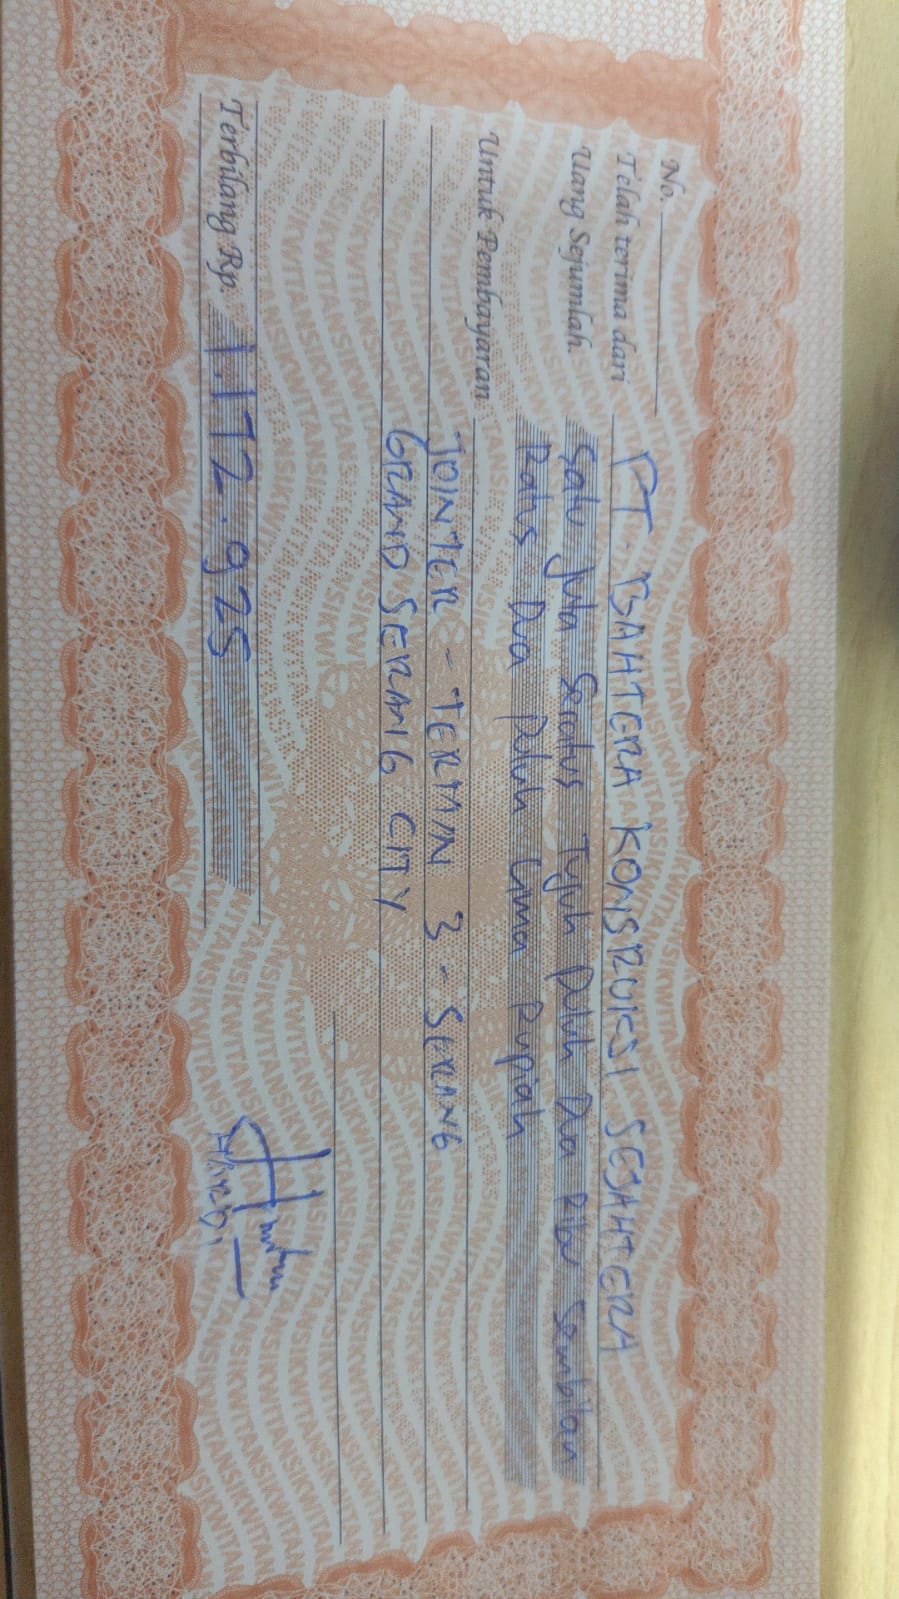 No.
Telah terima dari PT. BAHTERA KONSRUKSI SEJAHTERA
Uang Sejumlah. Satu Juta Seratus Tujuh Puluh Dua Ribu Sembilan
Ratus Dua Puluh Lima Rupiah
Untuk Pembayaran
JOINTER - TERMIN 3 - SERANG
GRAND SERANG CITY
Terbilang Rp. 1.172.925